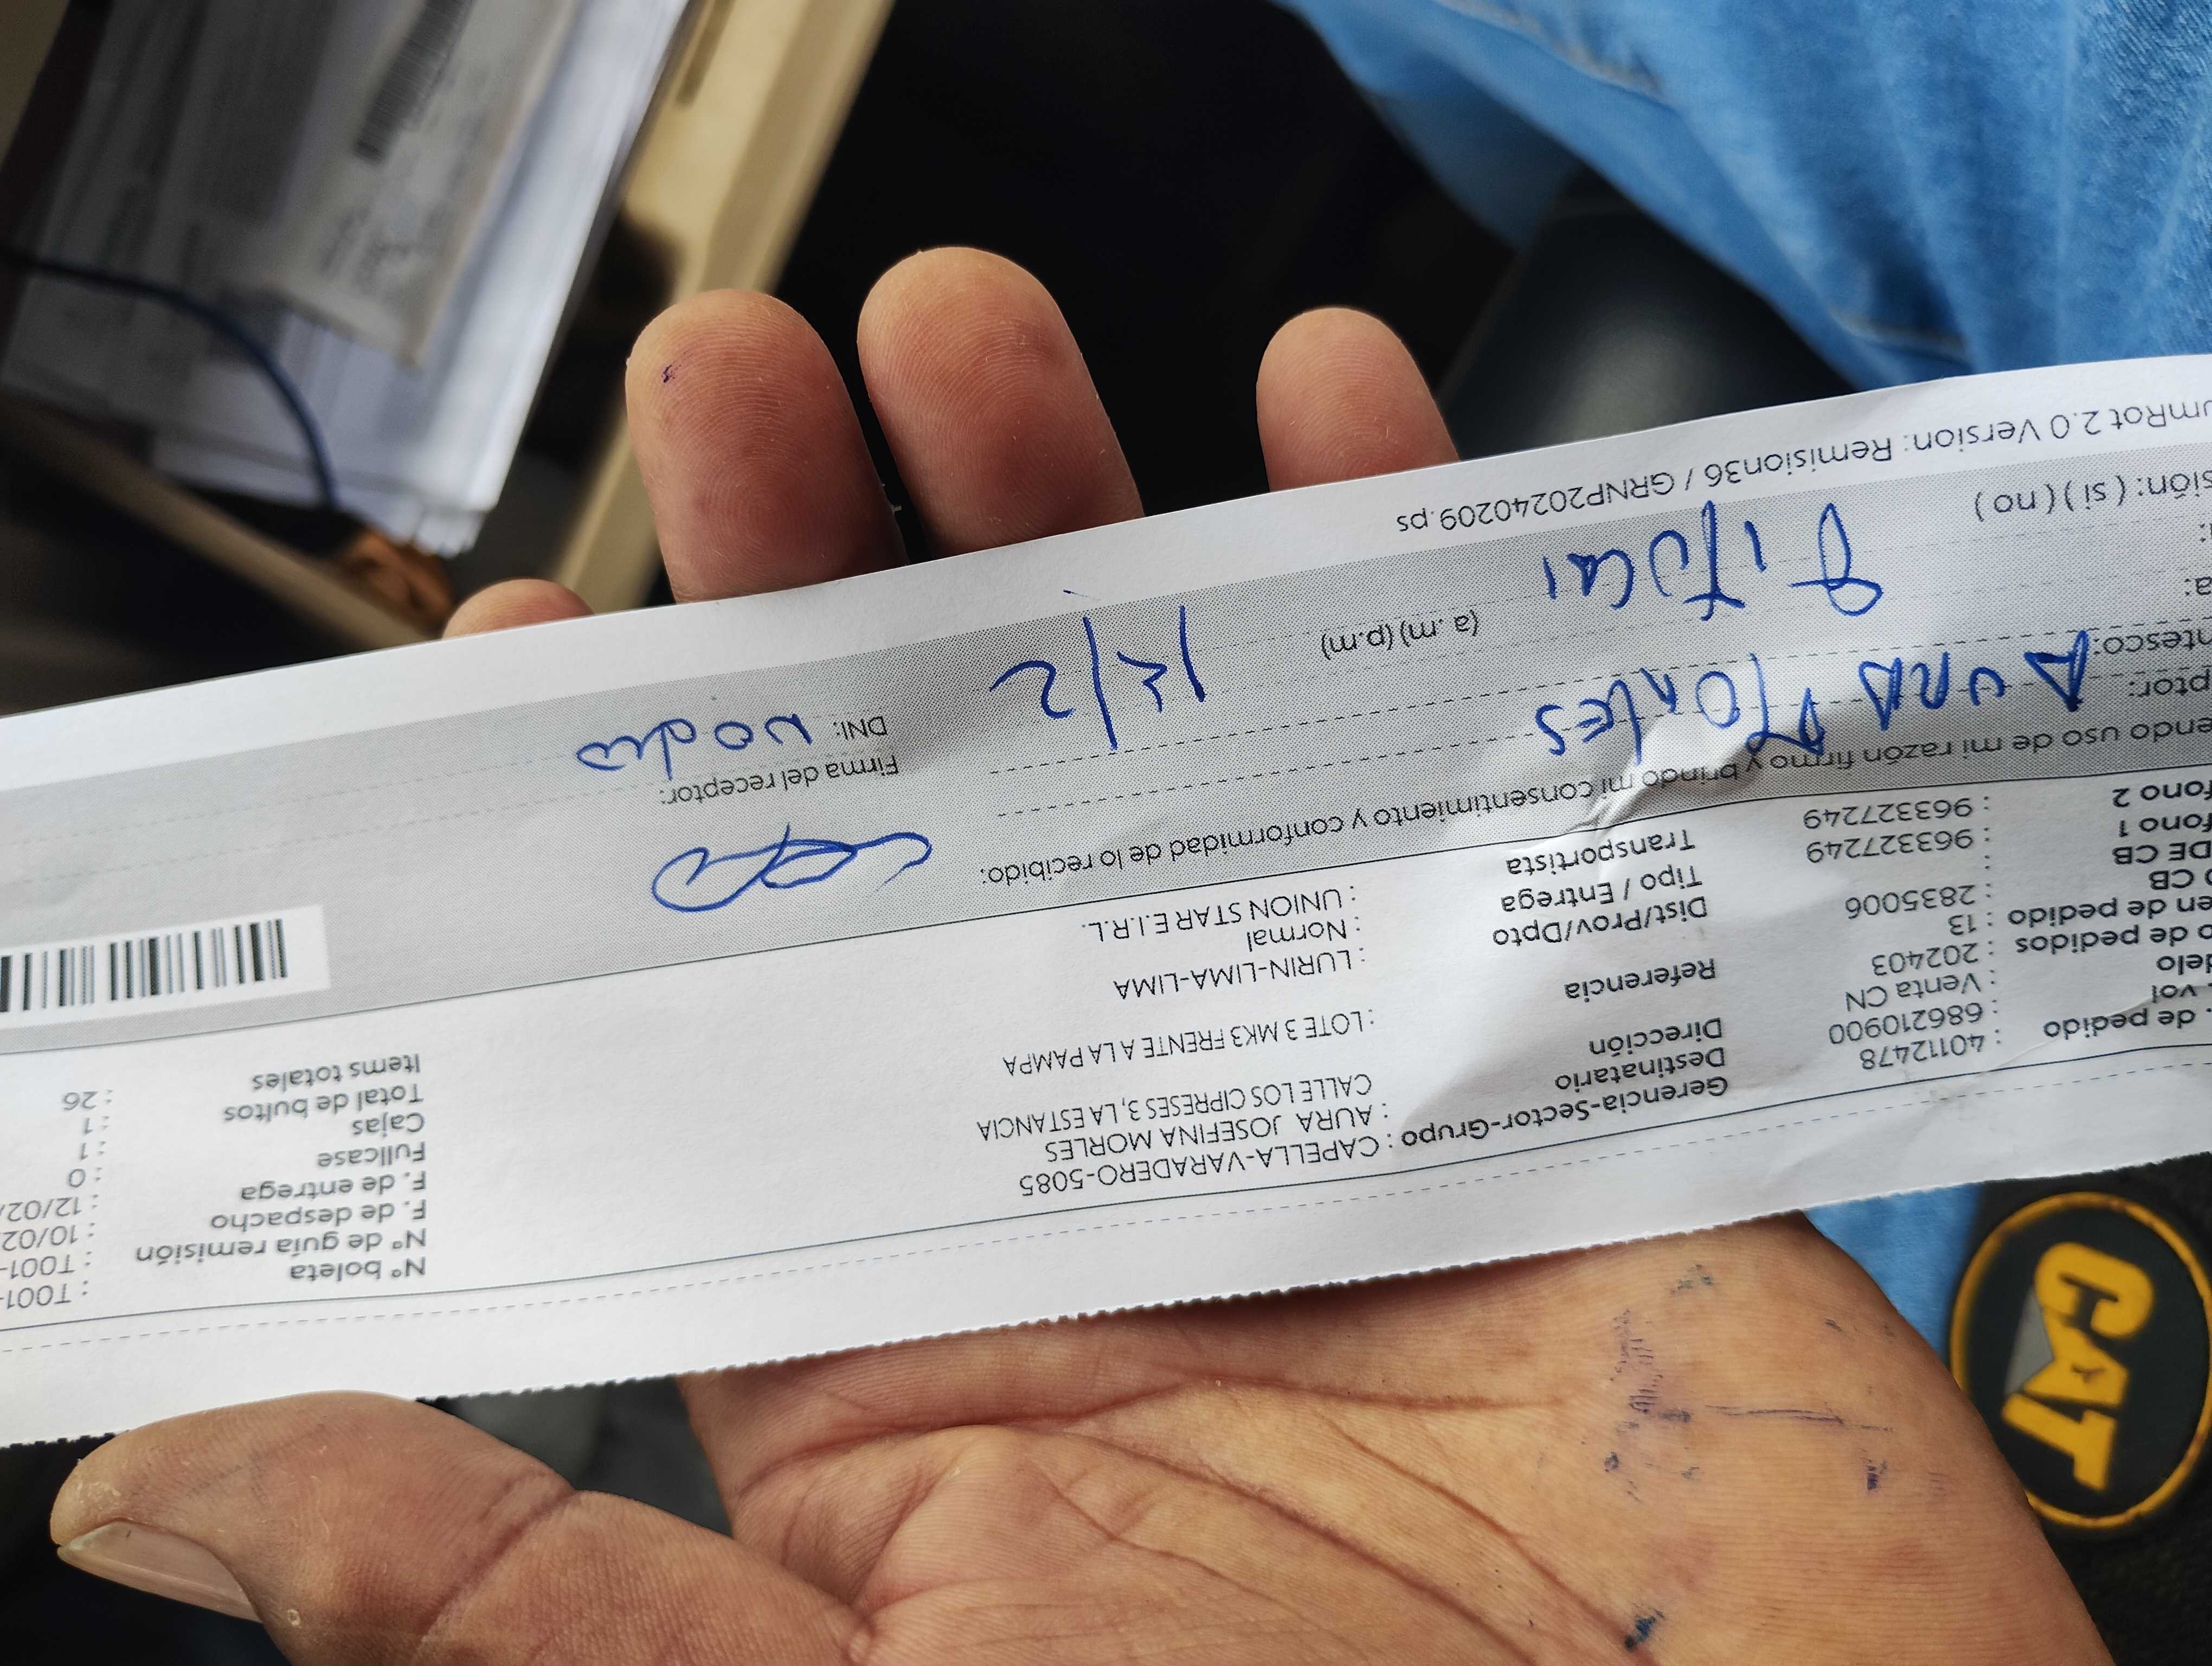 Nº boleta : T001-
Nº de guía remisión : T001-
F. de despacho : 10/02/
F. de entrega : 12/02/
Fullcase : 0
Cajas : 1
Total de bultos : 1
Items totales : 26
Gerencia-Sector-Grupo : CAPELLA-VARADERO-5085
Destinatario : AURA JOSEFINA MORLES
Dirección CALLE LOS CIPRESES 3, LA ESTANCIA
: LOTE 3 MK3 FRENTE A LA PAMPA
Referencia
Dist/Prov/Dpto : LURIN-LIMA-LIMA
Tipo / Entrega : Normal
Transportista : UNION STAR E.I.R.L.
. de pedido : 40112478
. vol : 686210900
delo : Venta CN
o de pedidos : 202403
en de pedido : 13
o CB : 2835006
DE CB :
fono 1 : 963327249
fono 2 : 963327249
endo uso de mi razón firmo y brindo mi consentimiento y conformidad de lo recibido:
ptor:
ntesco:
a:
(a.m) (p.m)
sión: ( si ) ( no )
Firma del receptor:
DNI:
umRot 2.0 Version: Remision36 / GRNP20240209.ps
CAT